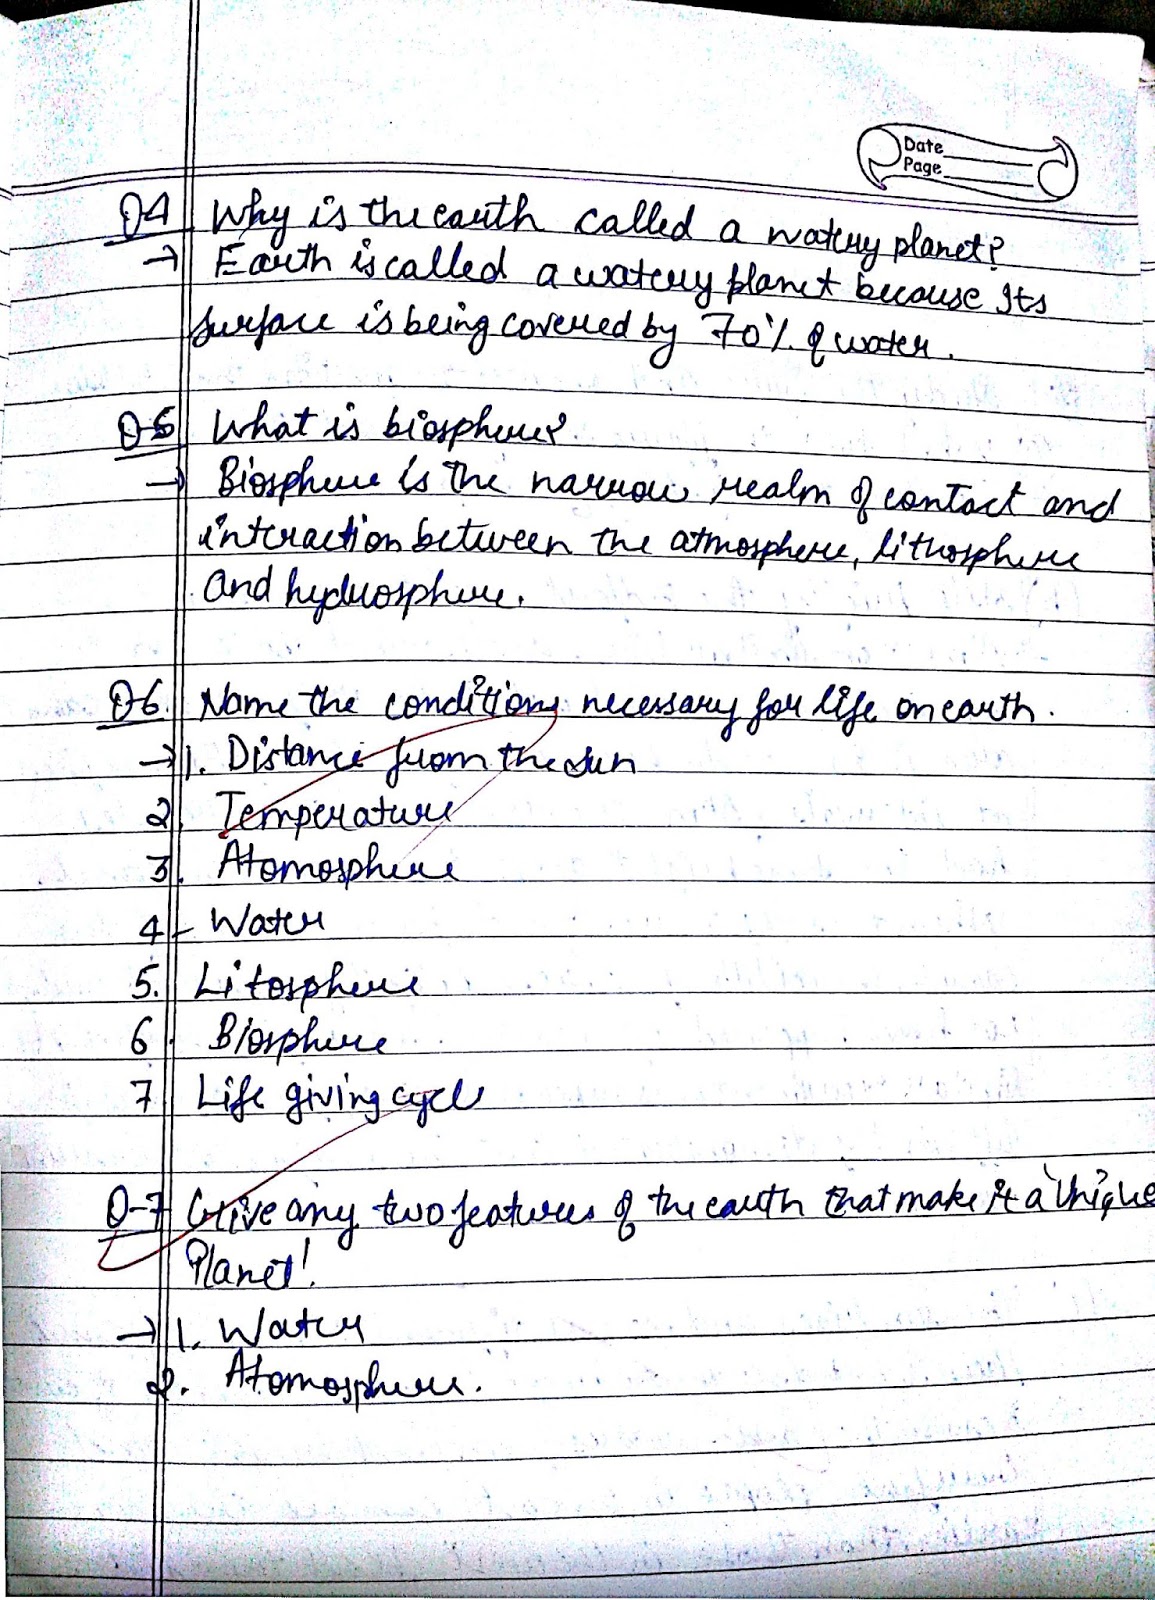 Date
Page
Q4 Why is the earth called a watery planet?
→ Earth is called a watery planet because Its
surface is being covered by 70% of water.
Q-5 What is biosphere?
→ Biosphere is the narrow realm of contact and
interaction between the atmosphere, lithosphere
and hydrosphere.
Q6. Name the conditions necessary for life on earth.
→ 1. Distance from the sun
2. Temperature
3. Atomosphere
4 - Water
5. Litosphere
6. Biosphere
7 Life giving cycle
Q-7 Give any two features of the earth that make it a Unique
Planet!
→ 1. Water
2. Atomosphere.